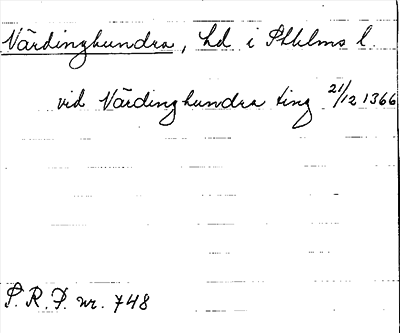 Värdinghundra, hd i Sthlms l.
vid Värdinghundra ting 21/12 1366
S.R.P. nr. 748